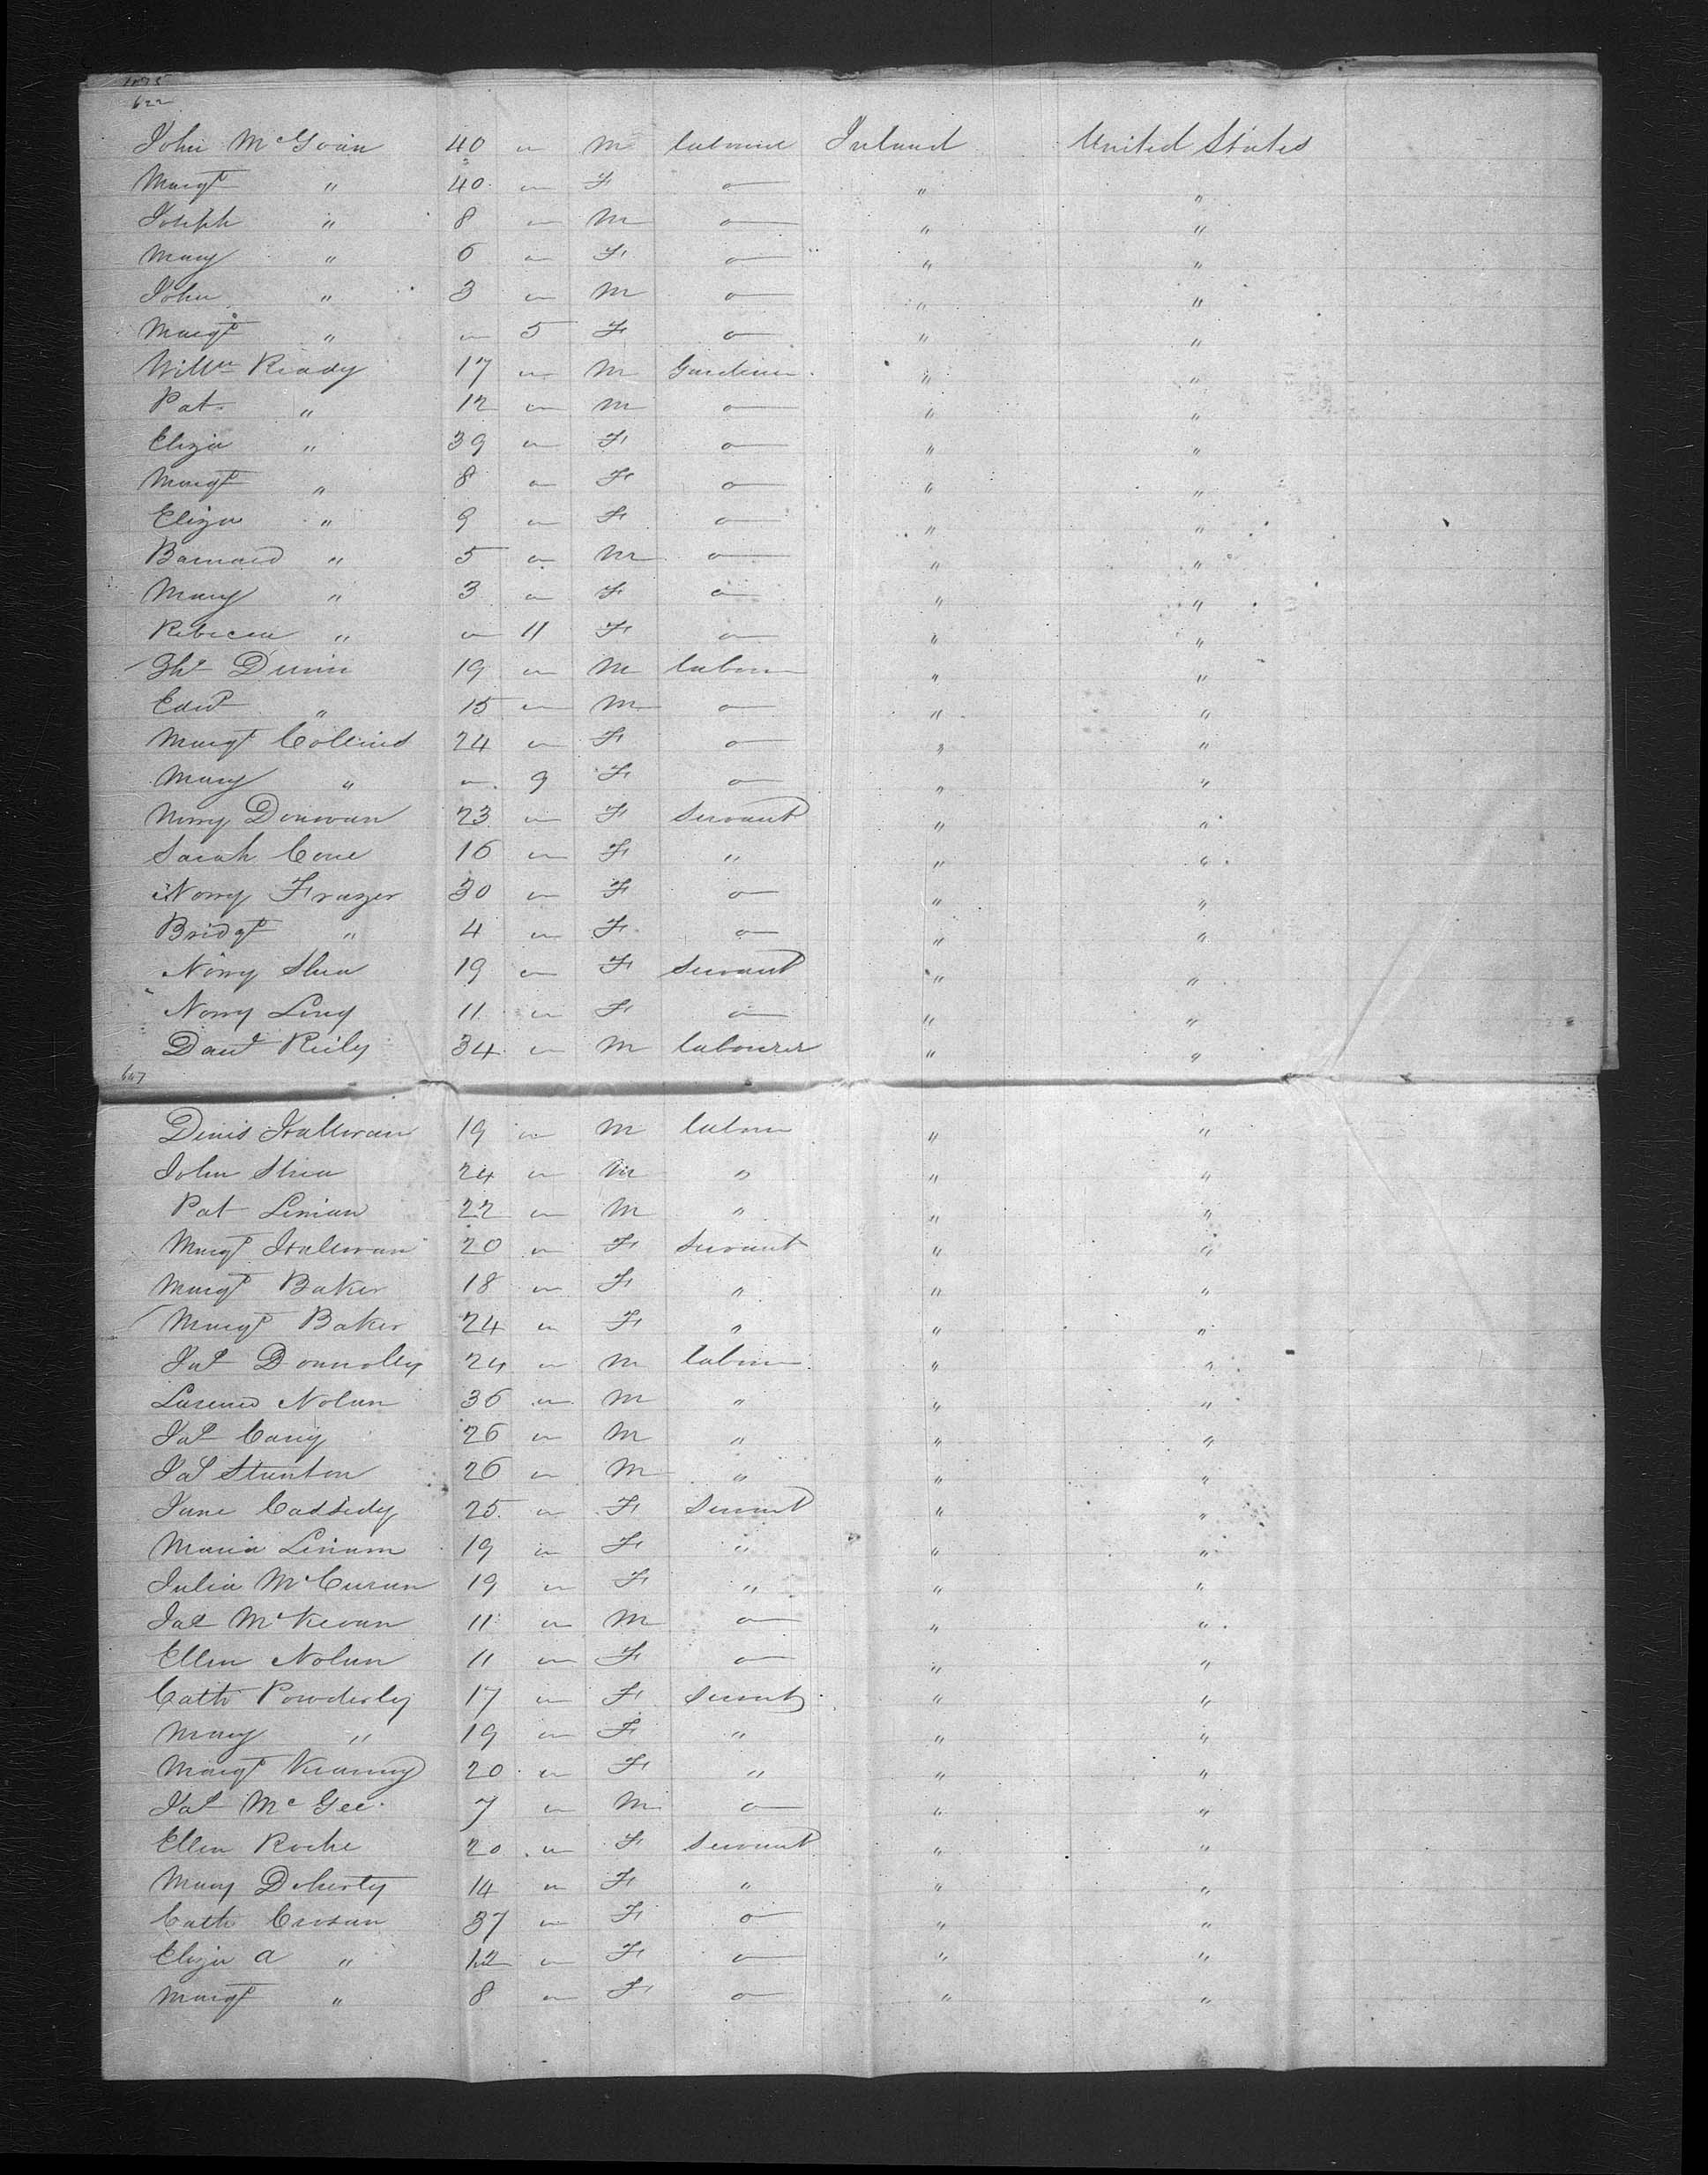 622
John McGovin 40 " M labourer Ireland United States
Margt " 40 " F " " "
Joseph " 8 " M " " "
Mary " 6 " F " " "
John " 3 " M " " "
Margt " " 5 F " " "
Willm Ready 17 " M Gardiner " "
Pat " 12 " M " " "
Eliza " 39 " F " " "
Margt " 8 " F " " "
Eliza " 9 " F " " "
Barnard " 5 " M " " "
Mary " 3 " F " " "
Rebecca " " 11 F " " "
Ths Dunn 19 " M labour " "
Edwd " 15 " M " " "
Margt Collins 24 " F " " "
Mary " " 9 F " " "
Norry Donovan 23 " F Servant " "
Sarah Cone 16 " F " " "
Norry Frazer 30 " F " " "
Bridgt " 4 " F " " "
Norry Shea 19 " F Servant " "
Norry Lucy 11 " F " " "
Danl Reily 34 " M labourer " "
647
Denis Halloran 19 " M labour " "
John Shea 24 " M " " "
Pat Linian 22 " M " " "
Margt Halloran 20 " F Servant " "
Margt Baker 18 " F " " "
Margt Baker 24 " F " " "
Jas Donnolly 24 " M labour " "
Larence Nolan 36 " M " " "
Jas Carry 26 " M " " "
Jas Stanton 26 " M " " "
Jane Cassedy 25 " F Servant " "
Maria Linam 19 " F " " "
Julia McCuran 19 " F " " "
Jas McKevan 11 " M " " "
Ellen Nolan 11 " F " " "
Cath Powderly 17 " F Servant " "
Mary " 19 " F " " "
Margt Kearney 20 " F " " "
Jas McGee 7 " M " " "
Ellen Roche 20 " F Servant " "
Mary Doherty 14 " F " " "
Cath Crosan 37 " F " " "
Eliza A " 12 " F " " "
Margt " 8 " F " " "